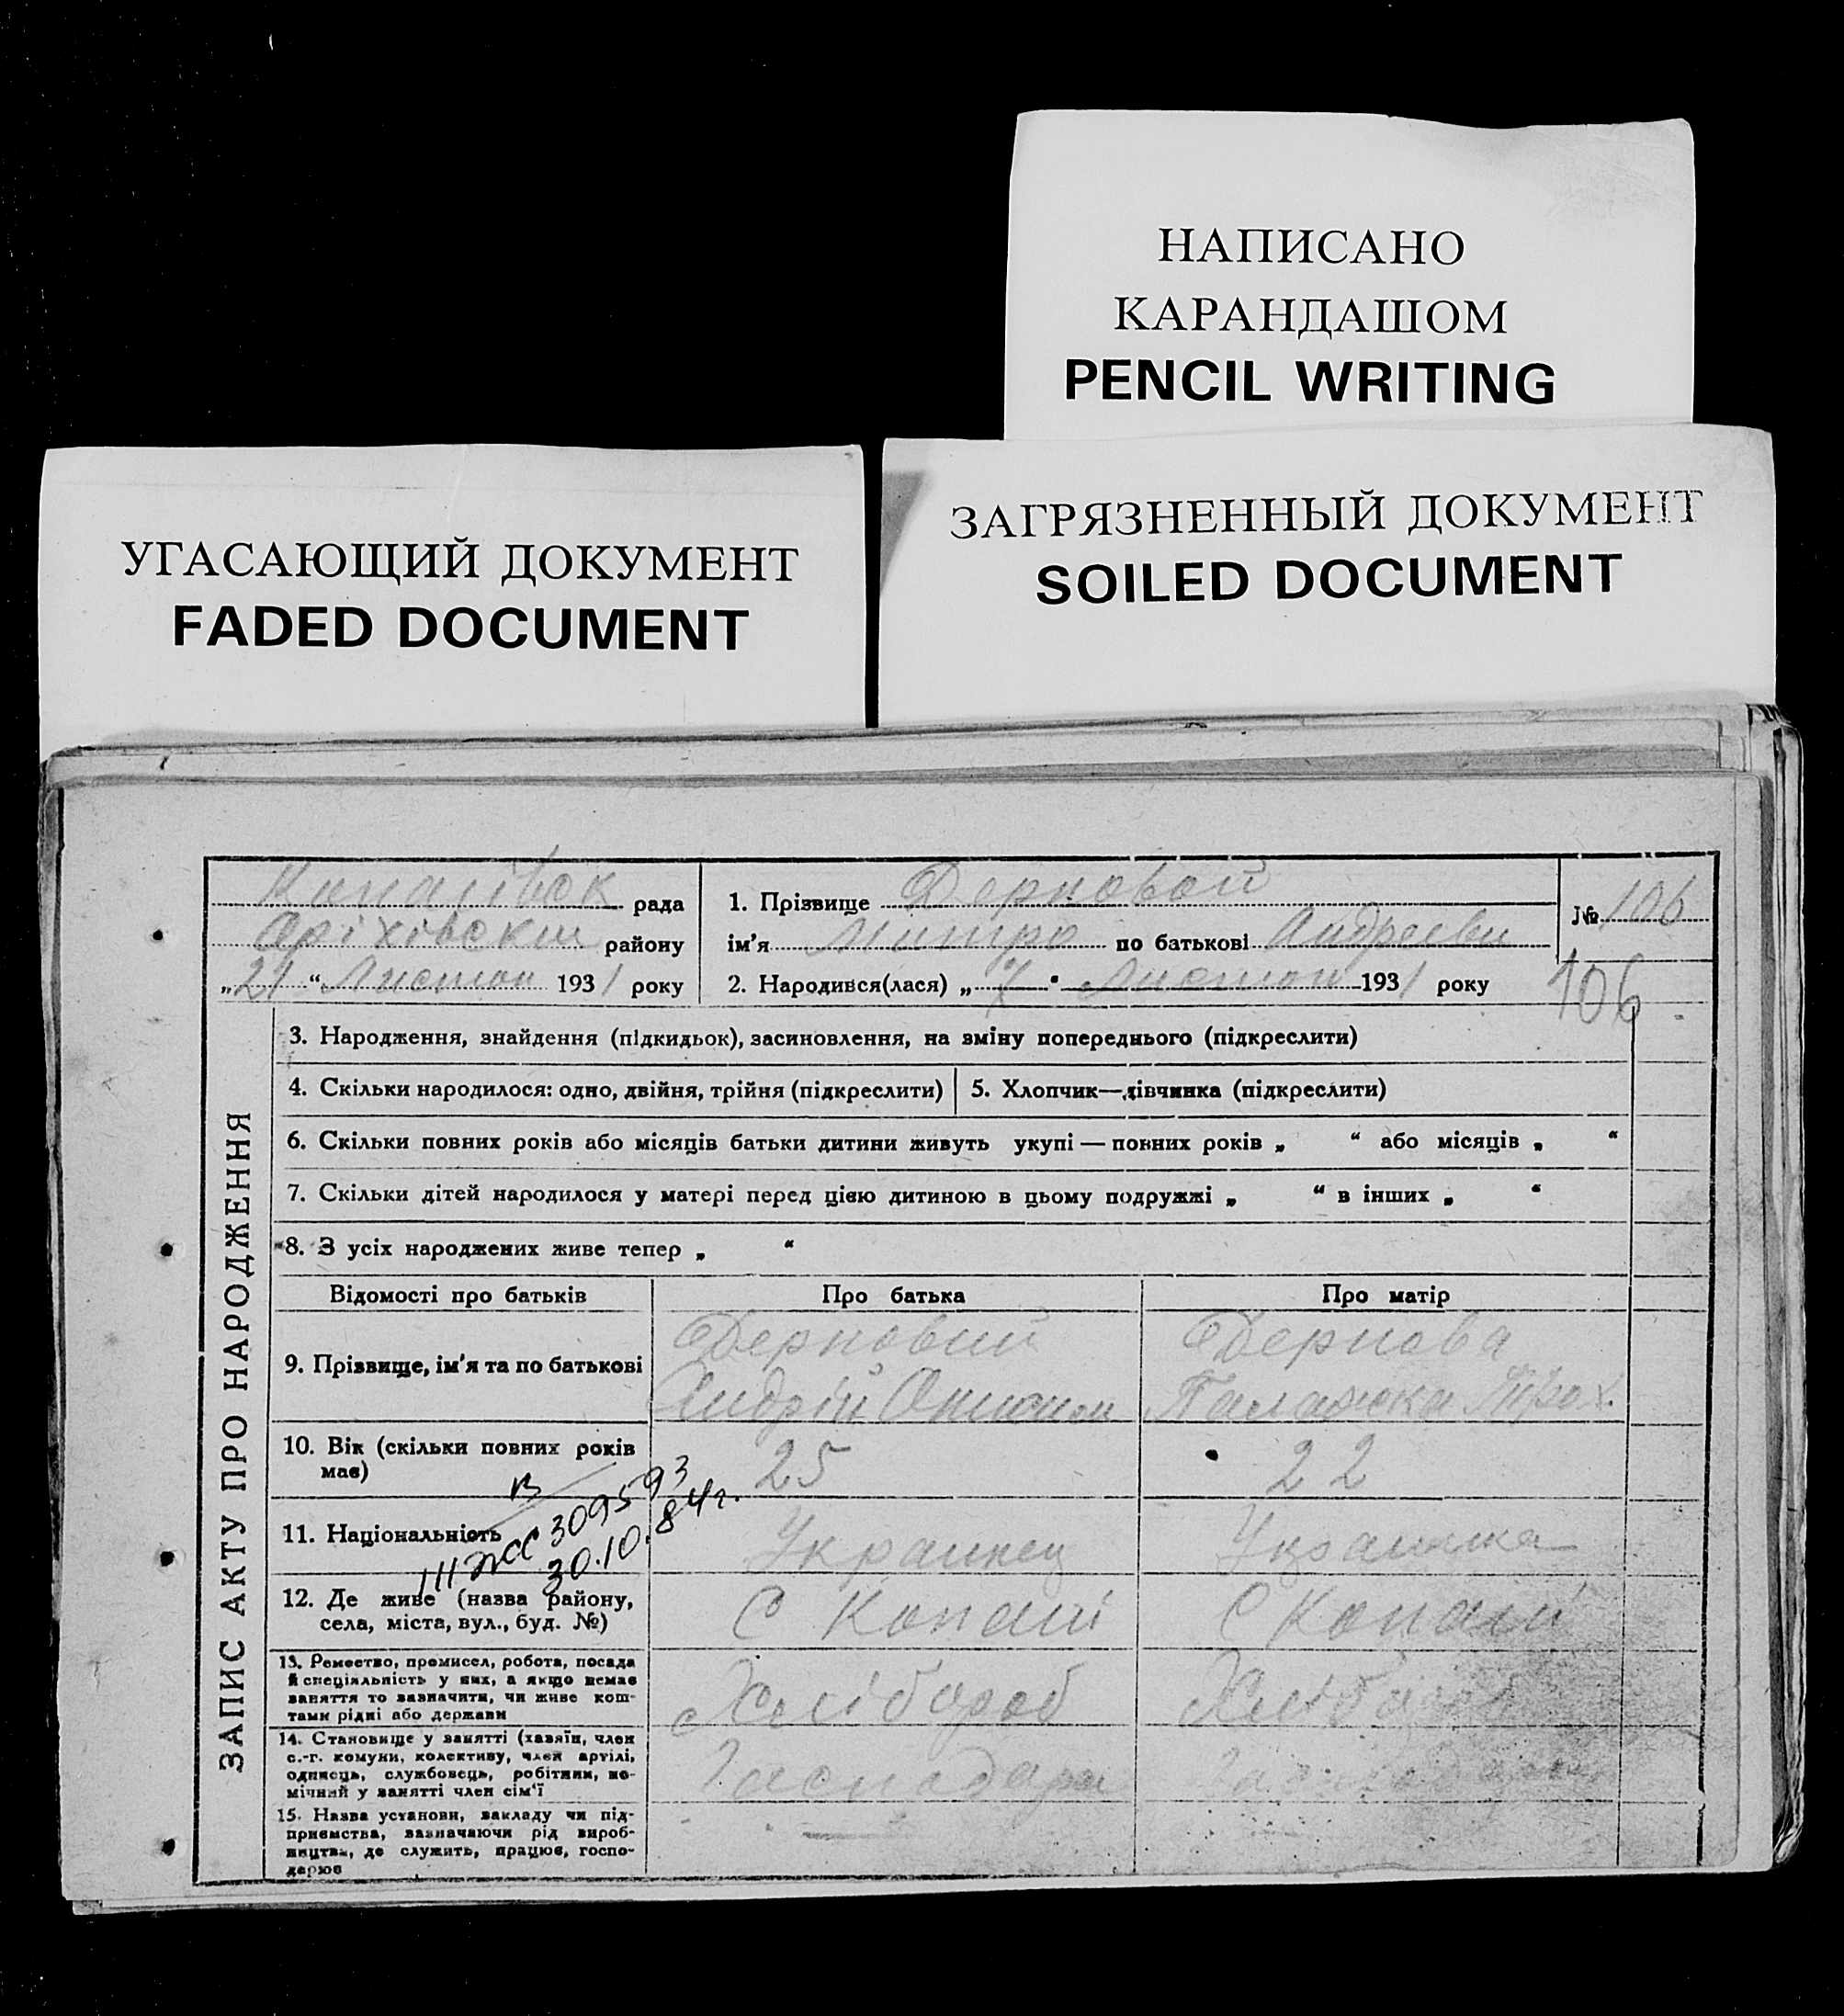 НАПИСАНО
КАРАНДАШОМ
PENCIL WRITING
УГАСАЮЩИЙ ДОКУМЕНТ
FADED DOCUMENT
ЗАГРЯЗНЕННЫЙ ДОКУМЕНТ
SOILED DOCUMENT
рада
району
„21“ Листоп 1931 року
1. Прізвище Дерновой
ім'я Митро по батькові Андреєви
2. Народився(лася) „7“ Листоп 1931 року
№ 106
106
ЗАПИС АКТУ ПРО НАРОДЖЕННЯ
3. Народження, знайдення (підкидьок), засиновлення, на зміну попереднього (підкреслити)
4. Скільки народилося: одно, двійня, трійня (підкреслити)
5. Хлопчик—дівчинка (підкреслити)
6. Скільки повних років або місяців батьки дитини живуть укупі — повних років „ “ або місяців „ “
7. Скільки дітей народилося у матері перед цією дитиною в цьому подружжі „ “ в інших „ “
8. З усіх народжених живе тепер „ “
Відомості про батьків
Про батька
Про матір
9. Прізвище, ім'я та по батькові
Дерновий
Андрій
Дернова
Палажка Трох.
10. Вік (скільки повних років
має)
25
22
11. Національність
Украинец
Украинка
III ЖС 309593
30.10.84г.
12. Де живе (назва району,
села, міста, вул., буд. №)
С Копані
С Копані
13. Ремество, промисел, робота, посада
й спеціяльність у них, а якщо немає
заняття то зазначити, чи живе кош-
тами рідні або держави
Хлібороб
Хлібороб
14. Становище у занятті (хазяїн, член
с.-г. комуни, колективу, член артілі,
одинець, службовець, робітник, по-
мічний у занятті член сім'ї
Господар
15. Назва установи, закладу чи під-
приємства, зазначаючи рід вироб-
ництва, де служить, працює, госпо-
дарює